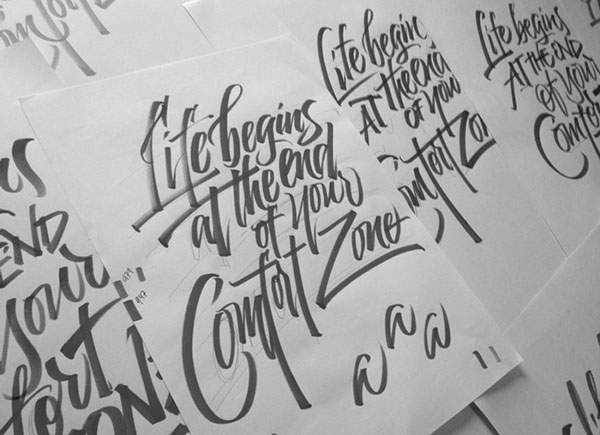 Life begins
at the end
of your
Comfort Zone
a a a a
Life begin
At the end
of you
omfort Zon
Life begins
AT THE END
of your
Comfor
END
your
fort